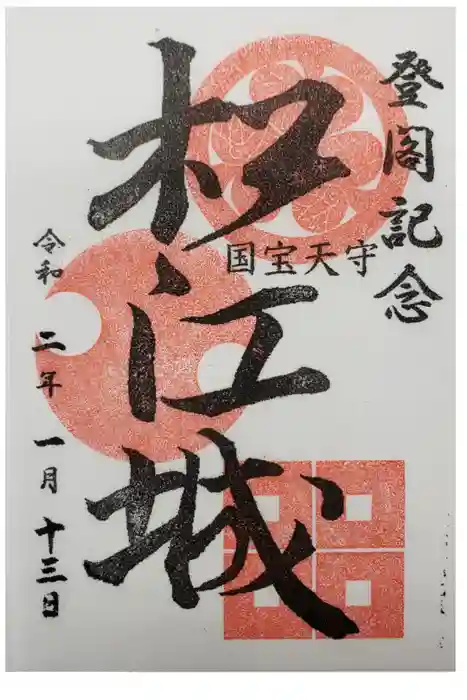 登閣記念
国宝天守
松江城
令和二年一月十三日